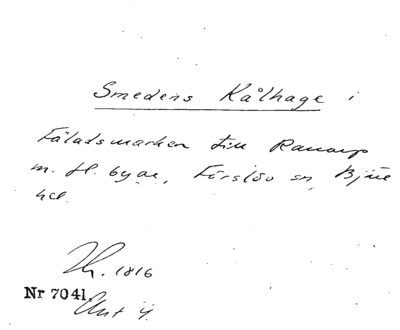 Smedens Kålhage i
Fäladsmarken till Ramarp
m. fl. byar, Förslöv sn, Bjäre
hd.
Lh. 1816
Nr 7041.
Akt 4.